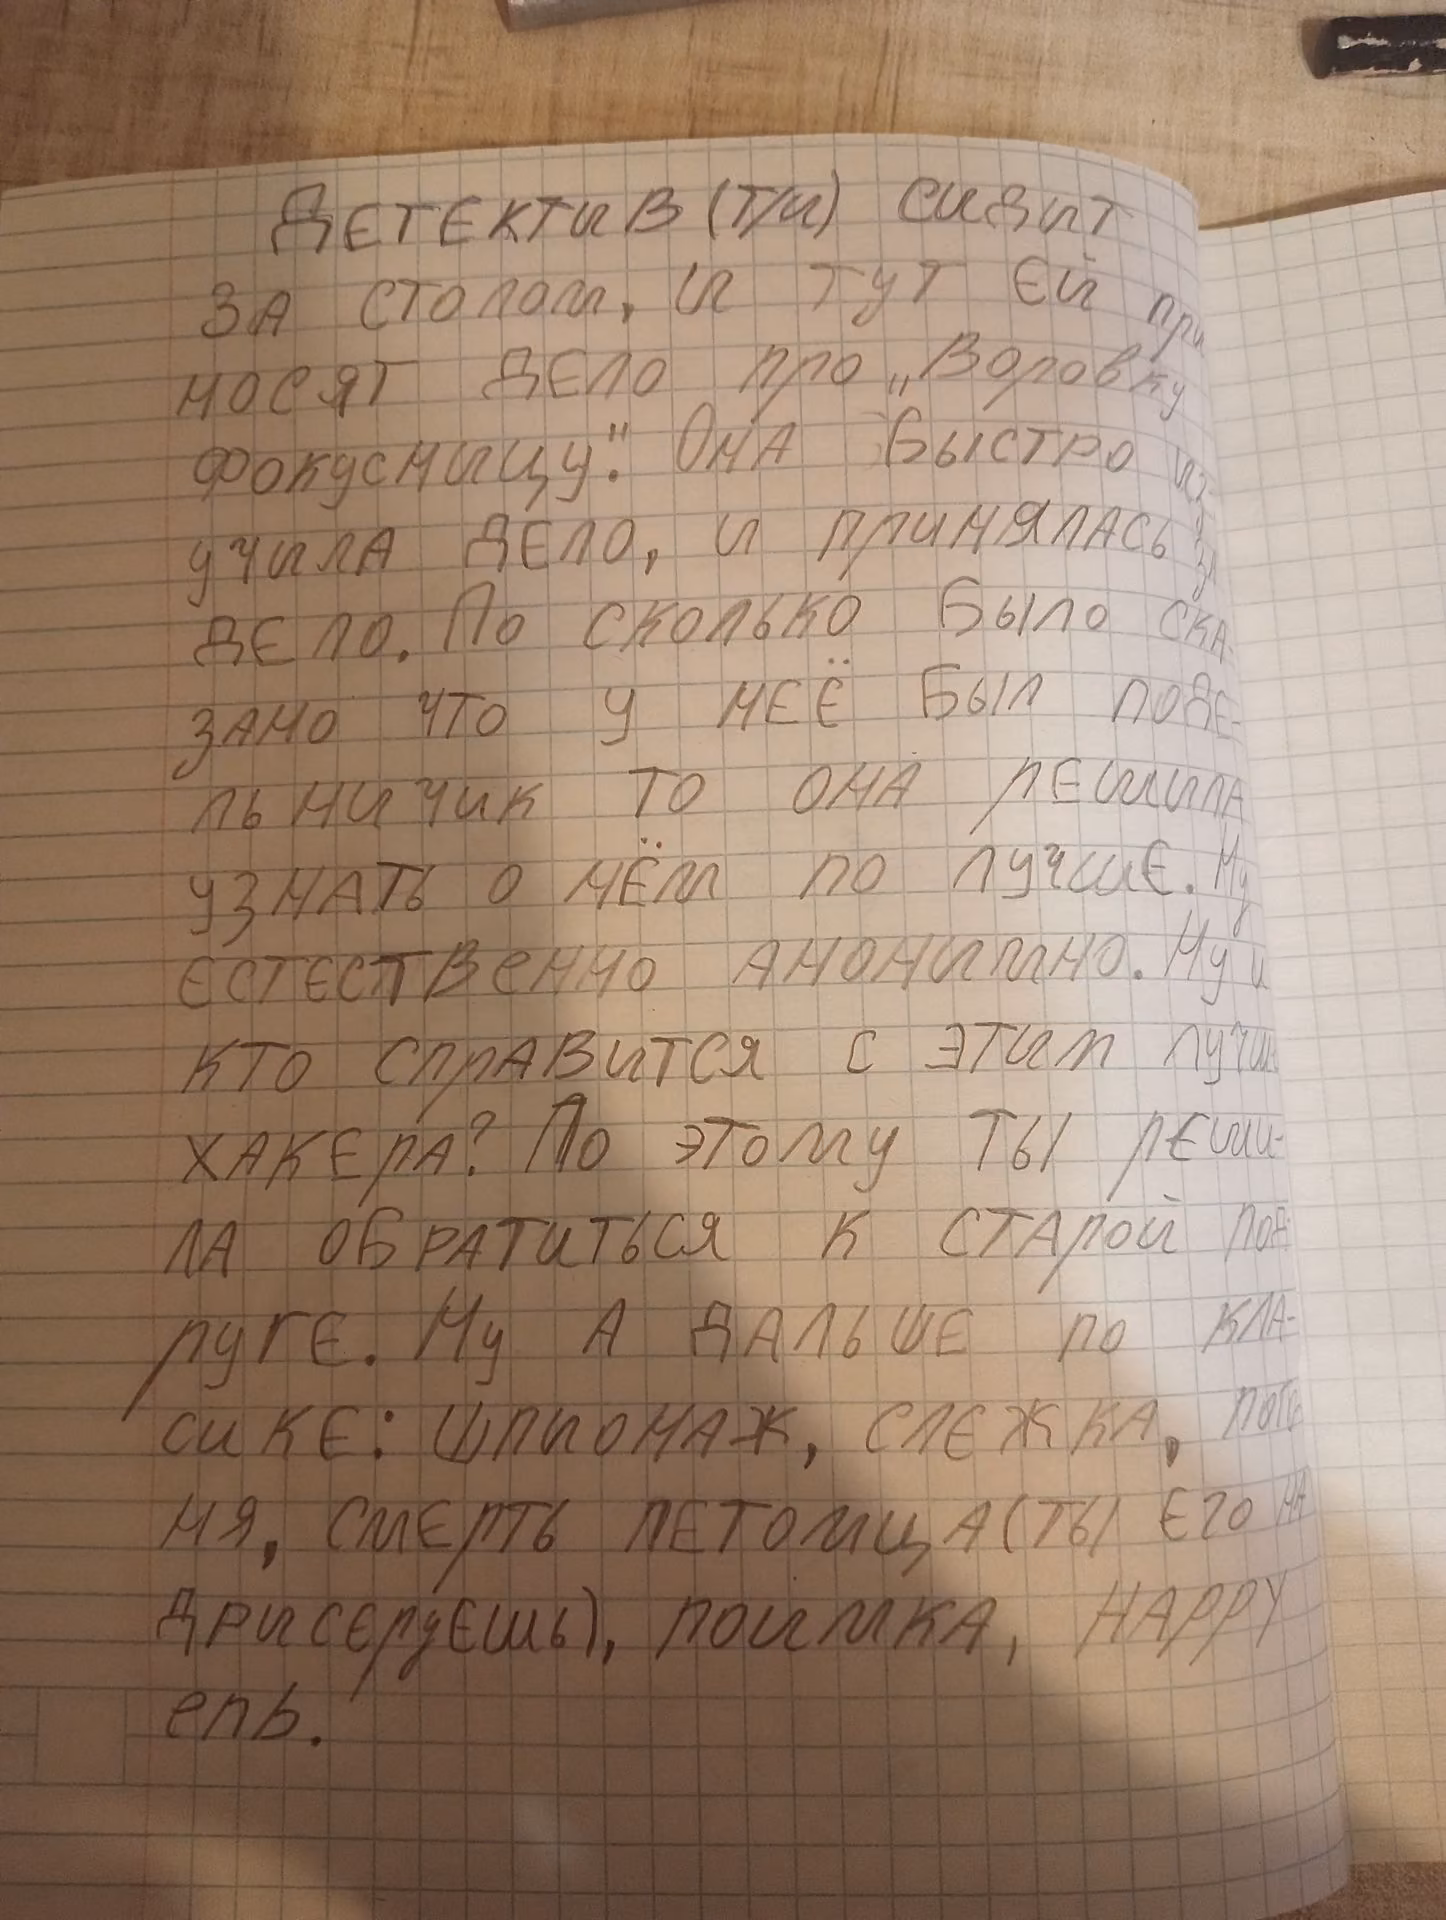 Детектив (Т/и) сидит
за столом, и тут ей при
носят дело про „Воровку
фокусницу". Она быстро из-
учила дело, и принялась за
дело. По сколько было ска-
зано что у неё был поде-
льничик то она решила
узнать о нём по лучше. Ну
естественно анонимно. Ну и
кто справится с этим лучше
хакера? По этому ты реши-
ла обратиться к старой под-
руге. Ну а дальше по кла-
сике: шпионаж, слежка, пого
ня, смерть петомца (ты его на
дрисеруешь), поимка, HAPPY
enb.